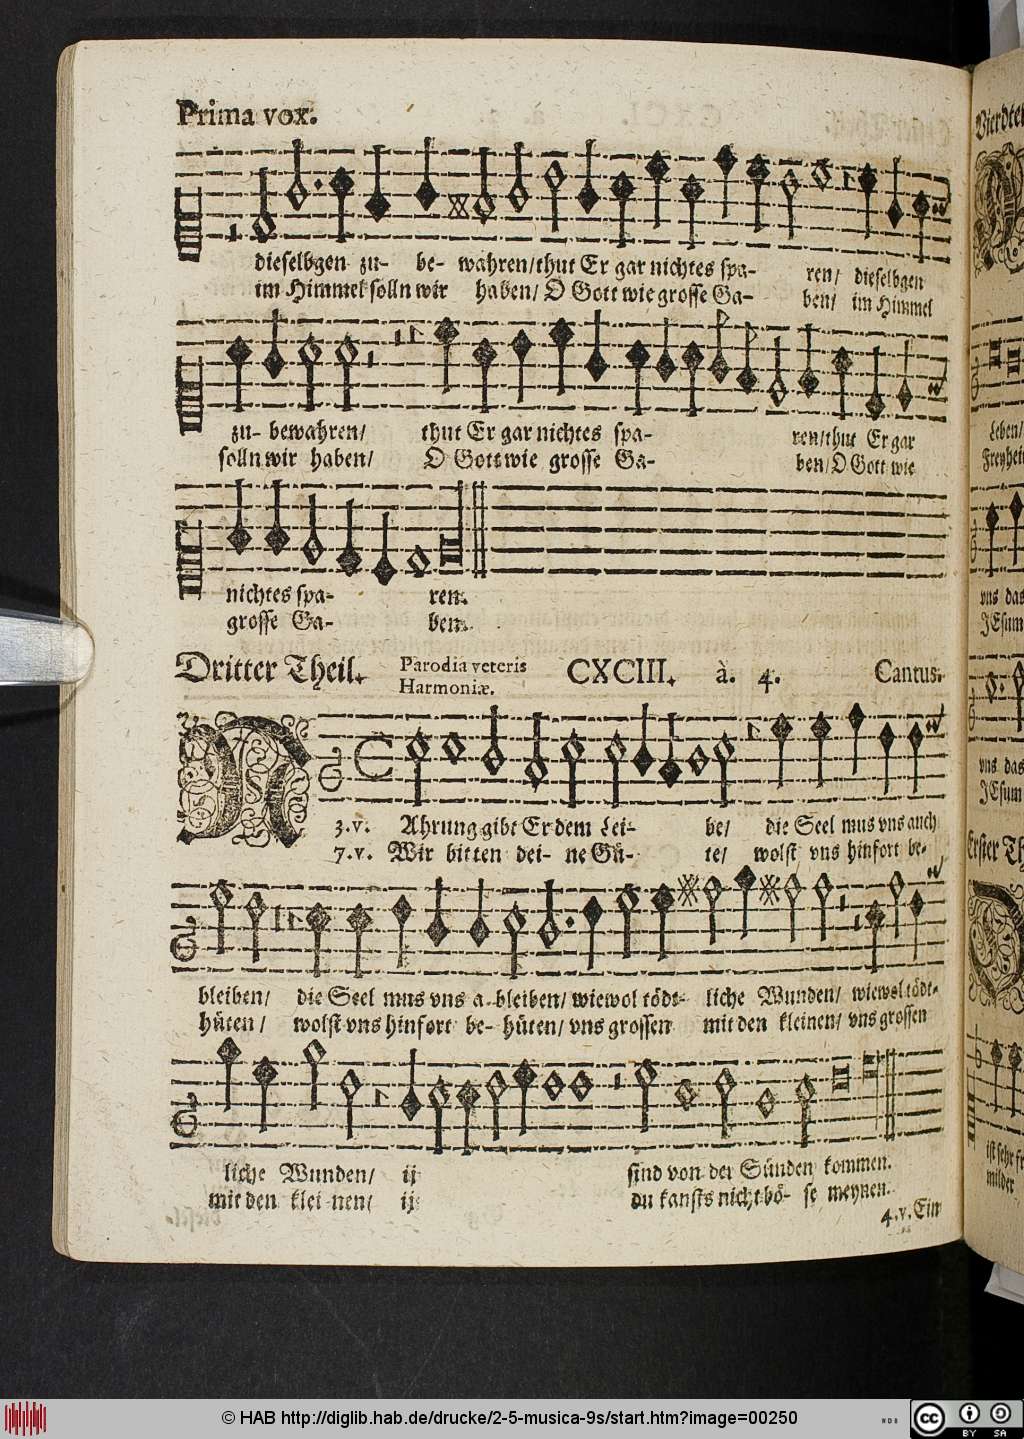 Prima vox.
dieselbgen zu- be- wahren/thut Er gar nichtes spa- ren/ dieselbgen
im Himmel solln wir haben/ O Gott wie grosse Ga- ben/ im Himmel
zu- bewahren/ thut Er gar nichtes spa- ren/thut Er gar
solln wir haben/ O Gott wie grosse Ga- ben/O Gott wie
nichtes spa- ren.
grosse Ga- ben.
Dritter Theil. Parodia veteris Harmoniæ. CXCIII. à. 4. Cantus.
N
3.v. Ahrung gibt Er dem Lei- be/ die Seel mus vns auch
7.v. Wir bitten dei- ne Gü- te/ wolst vns hinfort be-
bleiben/ die Seel mus vns a- bleiben/ wiewol tödt- liche Wunden/ wiewol tödt-
hüten/ wolst vns hinfort be- hüten/ vns grossen mit den kleinen/ vns grossen
liche Wunden/ ij sind von der Sünden kommen.
mit den klei- nen/ ij du kansts nicht bö- se meynen.
4.v. Ein
Vierdter
Leben/
Freyheit
vns das
JEsum
vns das
JEsum
Erster Th
ist sehr fr
milder
© HAB http://diglib.hab.de/drucke/2-5-musica-9s/start.htm?image=00250
cc BY SA